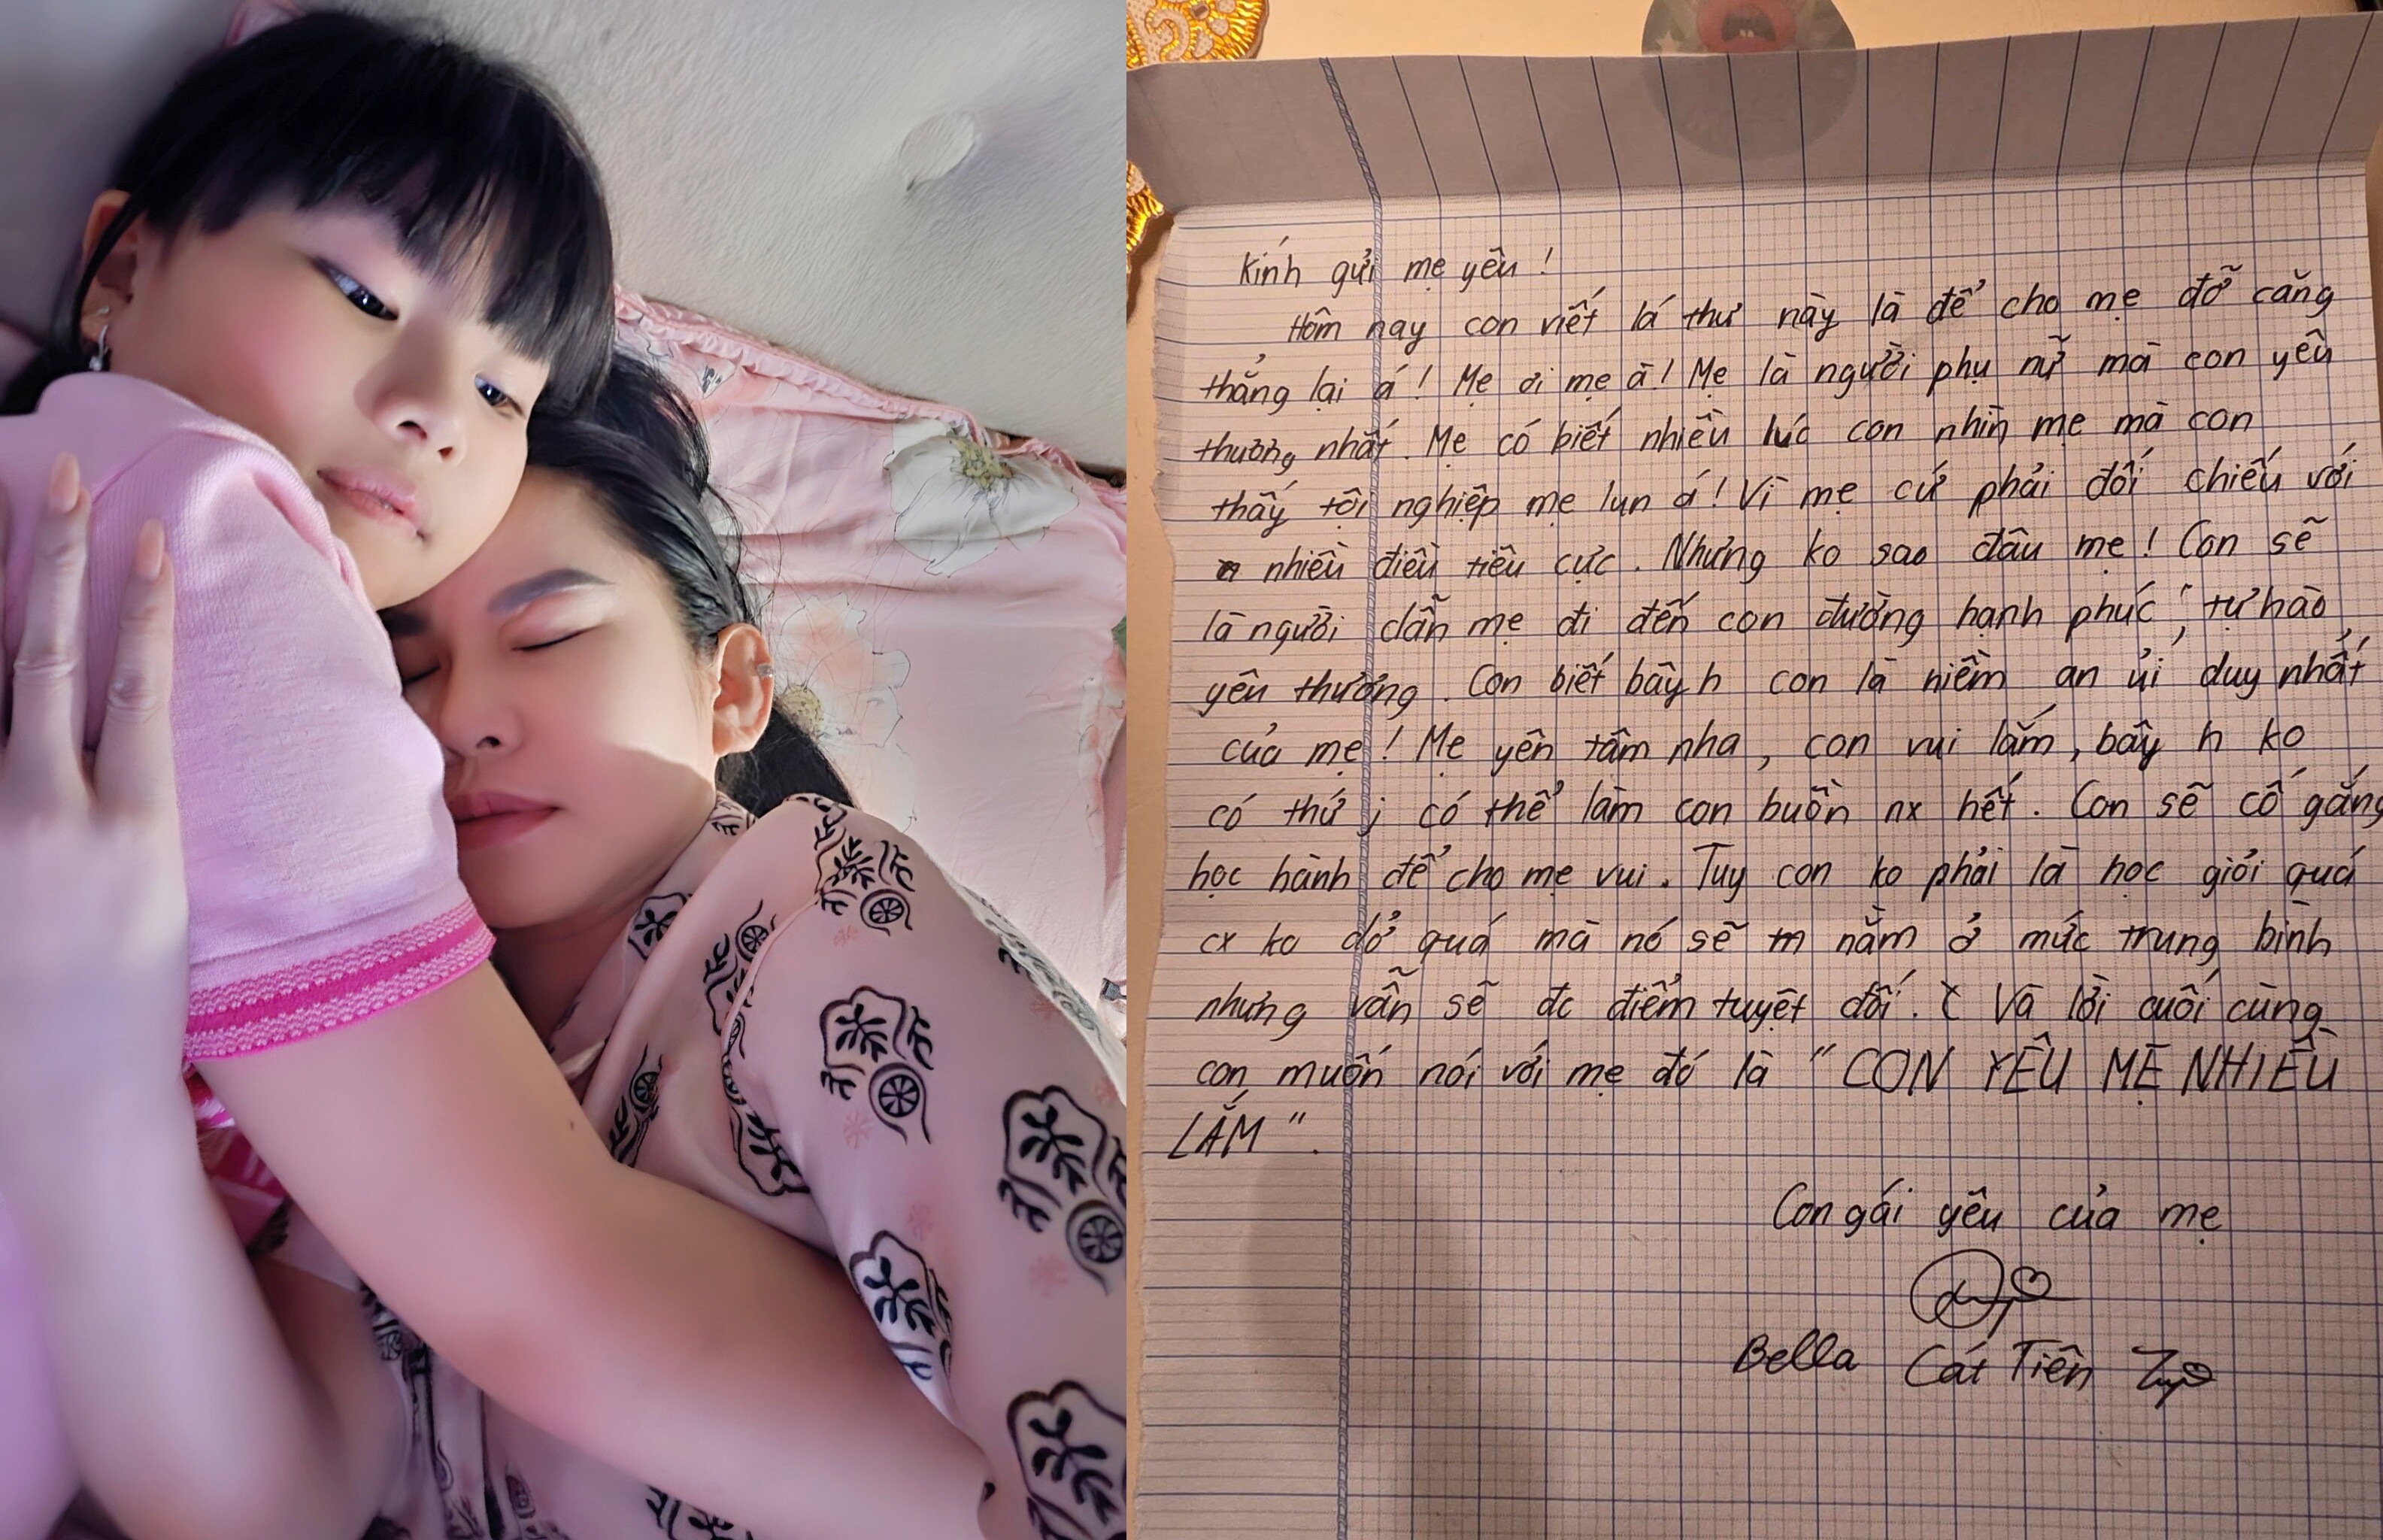 Kính gửi mẹ yêu !
Hôm nay con viết lá thư này là để cho mẹ đỡ căng
thẳng lại á ! Mẹ ơi mẹ à ! Mẹ là người phụ nữ mà con yêu
thương nhất. Mẹ có biết nhiều lúc con nhìn mẹ mà con
thấy tội nghiệp mẹ lun á ! Vì mẹ cứ phải đối chiếu với
nhiều điều tiêu cực. Nhưng ko sao đâu mẹ ! Con sẽ
là người dẫn mẹ đi đến con đường hạnh phúc, tự hào,
yêu thương. Con biết bây h con là niềm an ủi duy nhất
của mẹ ! Mẹ yên tâm nha, con vui lắm, bây h ko
có thứ j có thể làm con buồn nx hết. Con sẽ cố gắng
học hành để cho mẹ vui. Tuy con ko phải là học giỏi quá
cx ko dở quá mà nó sẽ nằm ở mức trung bình
nhưng vẫn sẽ đc điểm tuyệt đối. Và lời cuối cùng
con muốn nói với mẹ đó là "CON YÊU MẸ NHIỀU
LẮM".
Con gái yêu của mẹ
Bella Cát Tiên